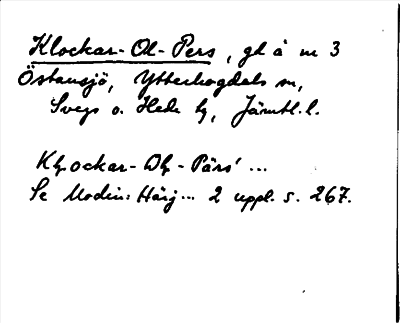 Klockar-Ol-Pers, gd å nr 3
Östansjö, Ytterhogdals sn,
Svegs o. Hede tg, Jämtl. l.
Kɭockar-Oɭ-Pärs' ...
Se Modin: Härj... 2 uppl. s. 267.